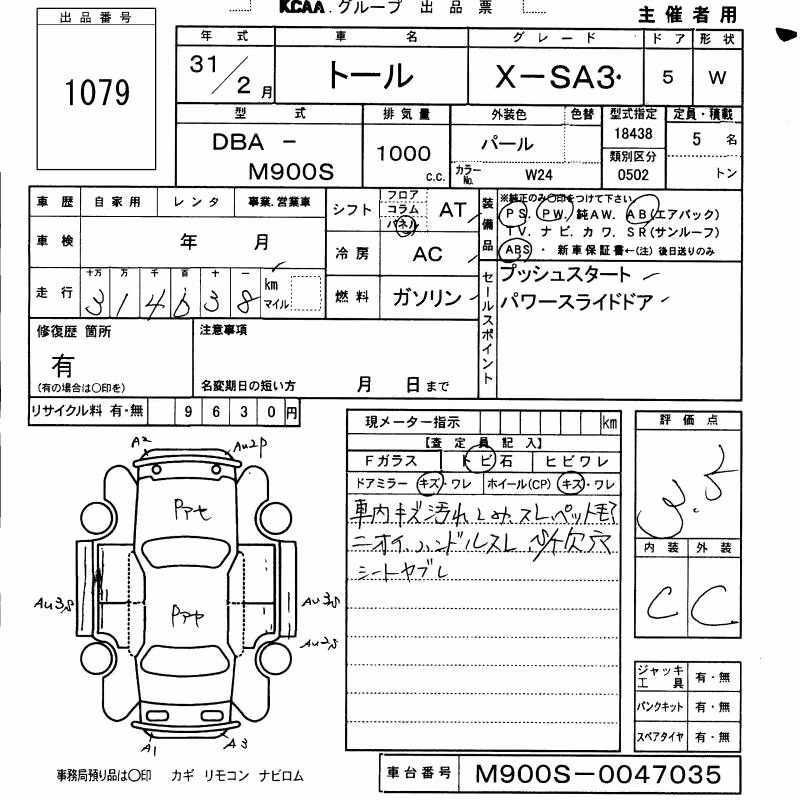 KCAA.グループ 出品票
主催者用
出品番号
1079
年式 車名 グレード ドア 形状
31/2月 トール X-SA3・ 5 W
型式 排気量 外装色 色替 型式指定 定員・積載
DBA - M900S 1000 c.c. パール 18438 5名
カラーNo. W24 類別区分 0502 トン
車歴 自家用 レンタ 事業.営業車
シフト フロア コラム パネル AT
装備品 ※純正のみ○印をつけて下さい。
PS. PW. 純AW. AB(エアバック)
TV. ナビ. カワ. SR(サンルーフ)
ABS ・ 新車保証書←(注)後日送りのみ
車検 年 月
冷房 AC
走行 十万 万 千 百 十 一 km マイル
314638
燃料 ガソリン
セールスポイント
プッシュスタート
パワースライドドア
修復歴 箇所
有
(有の場合は○印を)
注意事項
名変期日の短い方 月 日まで
リサイクル料 有・無 9630円
現メーター指示 km
【査定員記入】
Fガラス トビ石 ヒビワレ
ドアミラー キズ・ワレ ホイール(CP) キズ・ワレ
車内キズ汚れ シミ スレ ペット毛
ニオイ ハンドルスレ 欠穴
シートヤブレ
評価点
3.5
内装 外装
C C
A2 Au2P
Pアセ
Pアセ
Au3,S
Au3,S
Au2,S
A1 A3
ジャッキ工具 有・無
パンクキット 有・無
スペアタイヤ 有・無
事務局預り品は○印 カギ リモコン ナビロム
車台番号 M900S-0047035